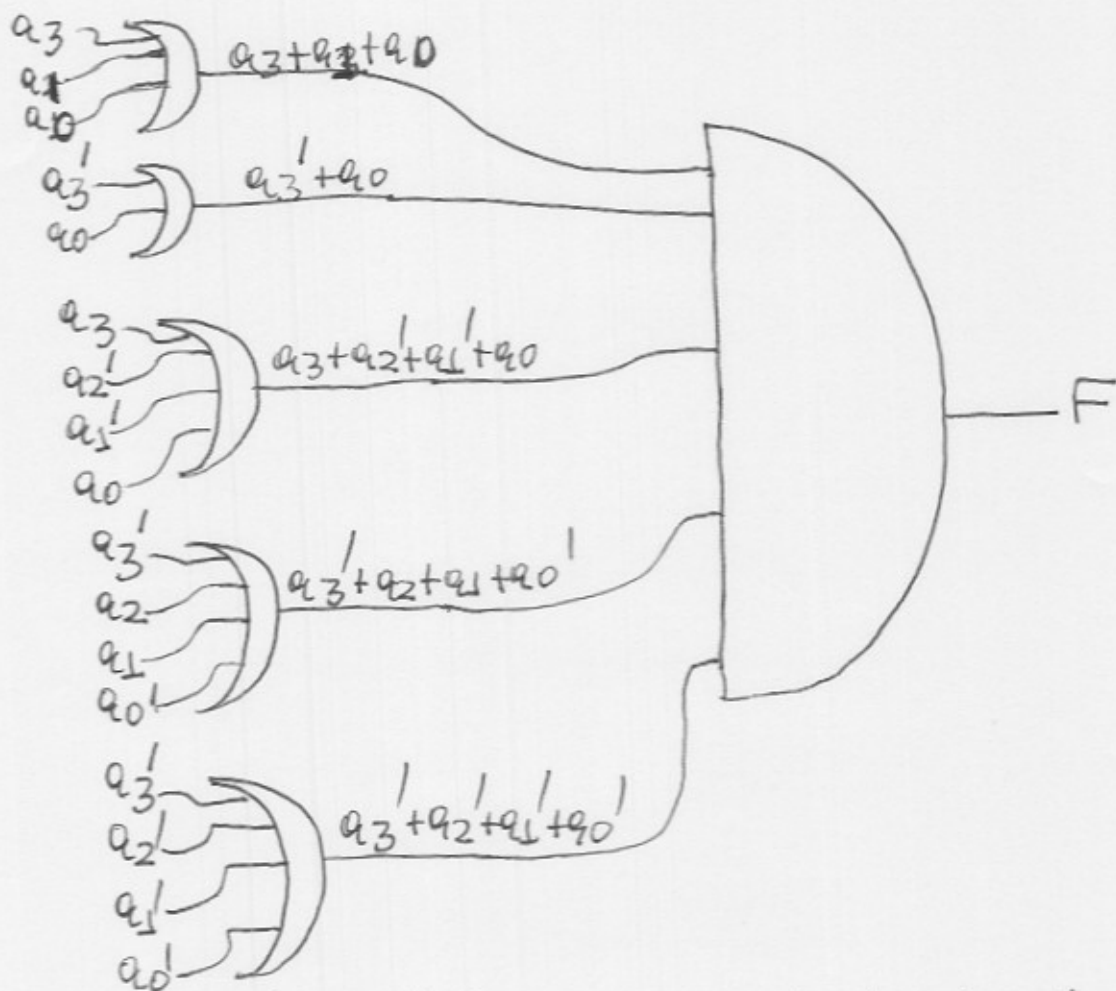 a3
a1
a0
a3+a1+a0
a3'
a0
a3'+a0
a3
a2'
a1'
a0
a3+a2'+a1'+a0
F
a3'
a2
a1
a0'
a3'+a2+a1+a0'
a3'
a2'
a1'
a0'
a3'+a2'+a1'+a0'